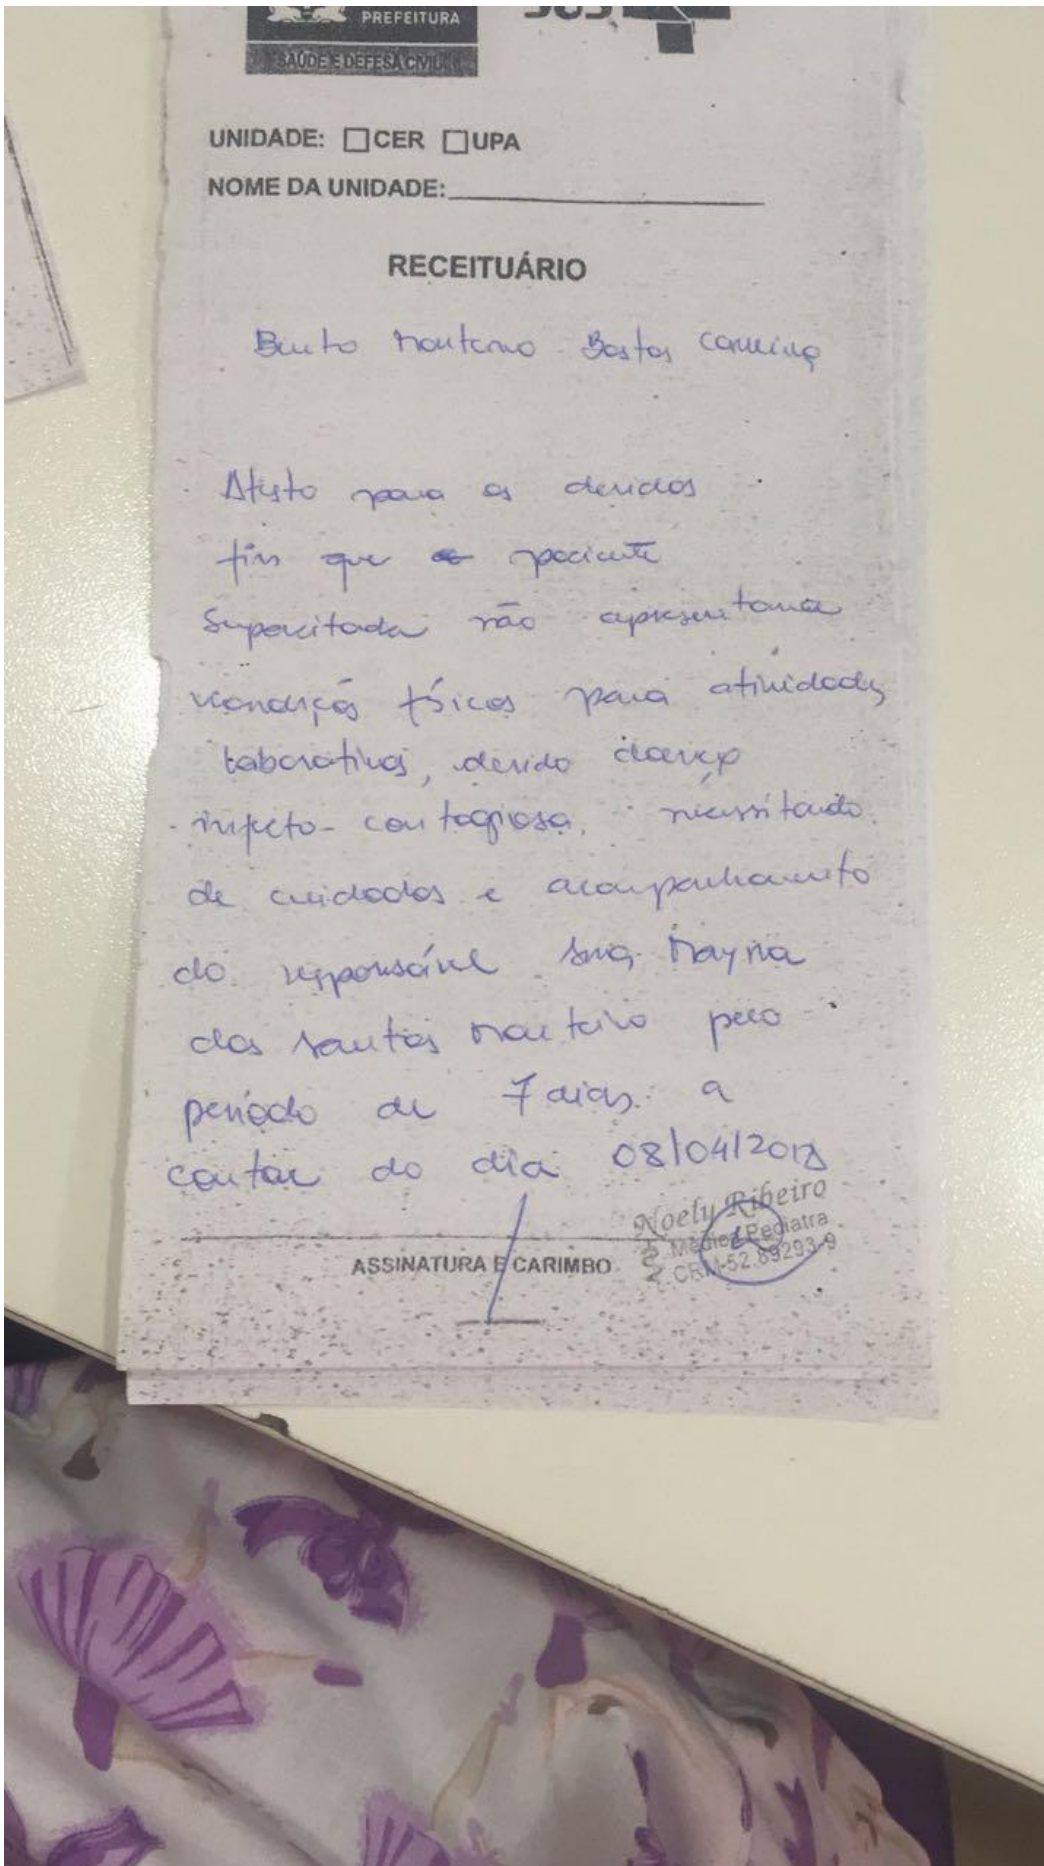 PREFEITURA
SAÚDE E DEFESA CIVIL
SUS
UNIDADE: CER UPA
NOME DA UNIDADE:
RECEITUÁRIO
Bento Monteiro Bastos
Atesto para os devidos
fins que paciente
Supracitada não apresenta
condições físicas para atividades
laborativas, devido doença
infecto-contagiosa, necessitando
de cuidados e acompanhamento
do responsável Sra, Mayna
dos Santos Monteiro pelo
período de 7 dias a
contar do dia 08/04/2018
Noely Ribeiro
Médica Pediatra
CRM-52.89293-9
ASSINATURA E CARIMBO